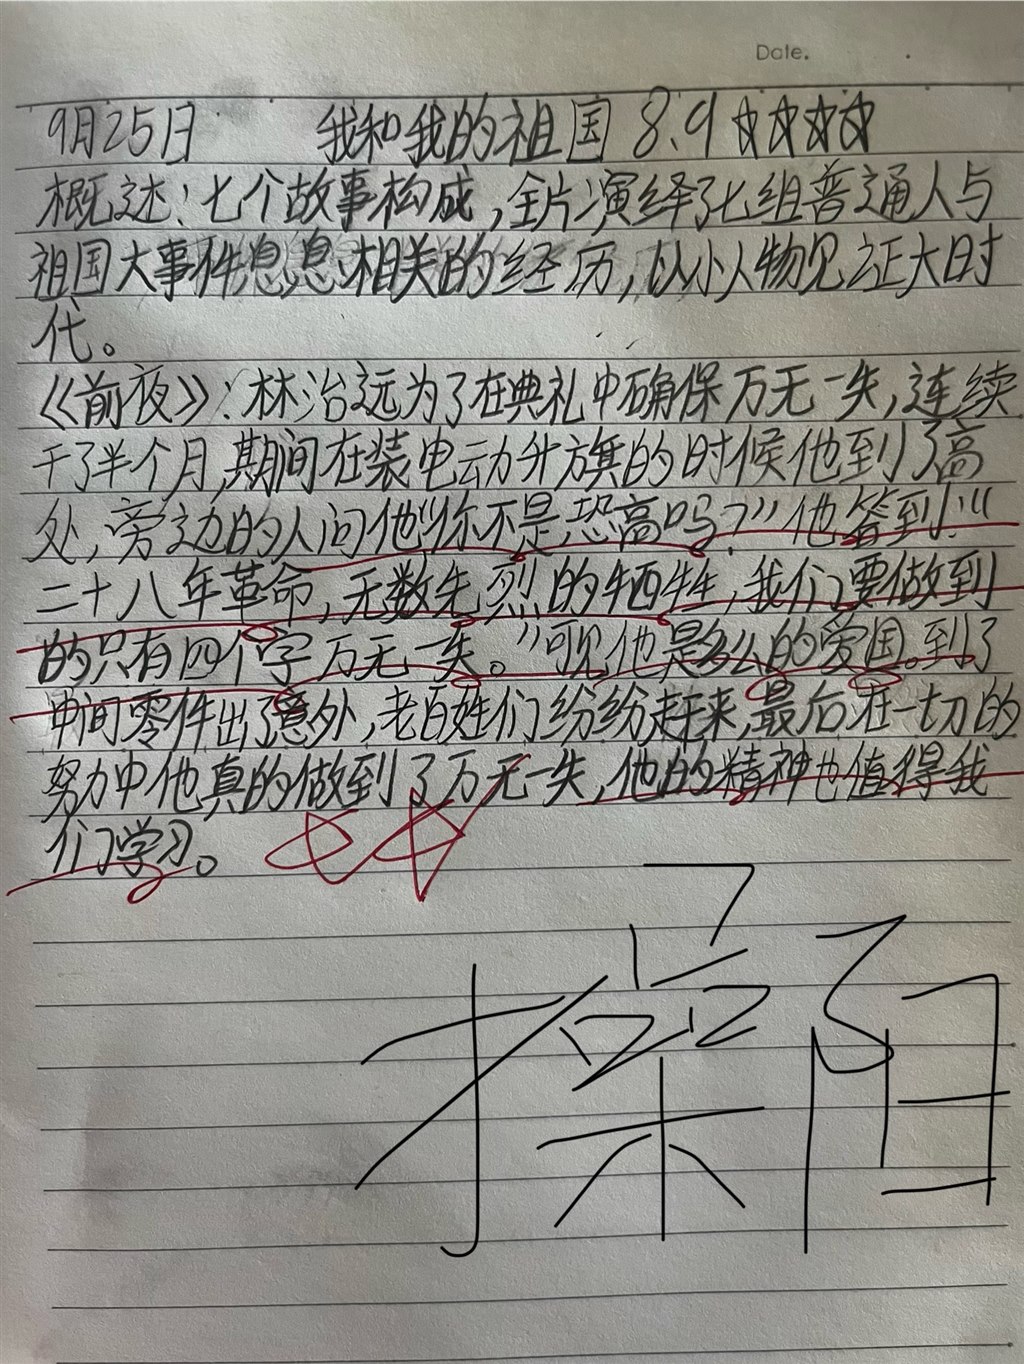 Date.
9月25日 我和我的祖国 8.9 ☆☆☆☆
概述:七个故事构成,全片演绎了七组普通人与
祖国大事件息息相关的经历,以小人物见证大时
代。
《前夜》:林治远为了在典礼中确保万无一失,连续
干了半个月,期间在装电动升旗的时候他到了高
处,旁边的人问他“你不是恐高吗?”他答到:“
二十八年革命,无数先烈的牺牲,我们要做到
的只有四个字万无一失。”可见他是多么的爱国。到了
中间零件出了意外,老百姓们纷纷赶来,最后在一切的
努力中他真的做到了万无一失,他的精神也值得我
们学习。
操阳